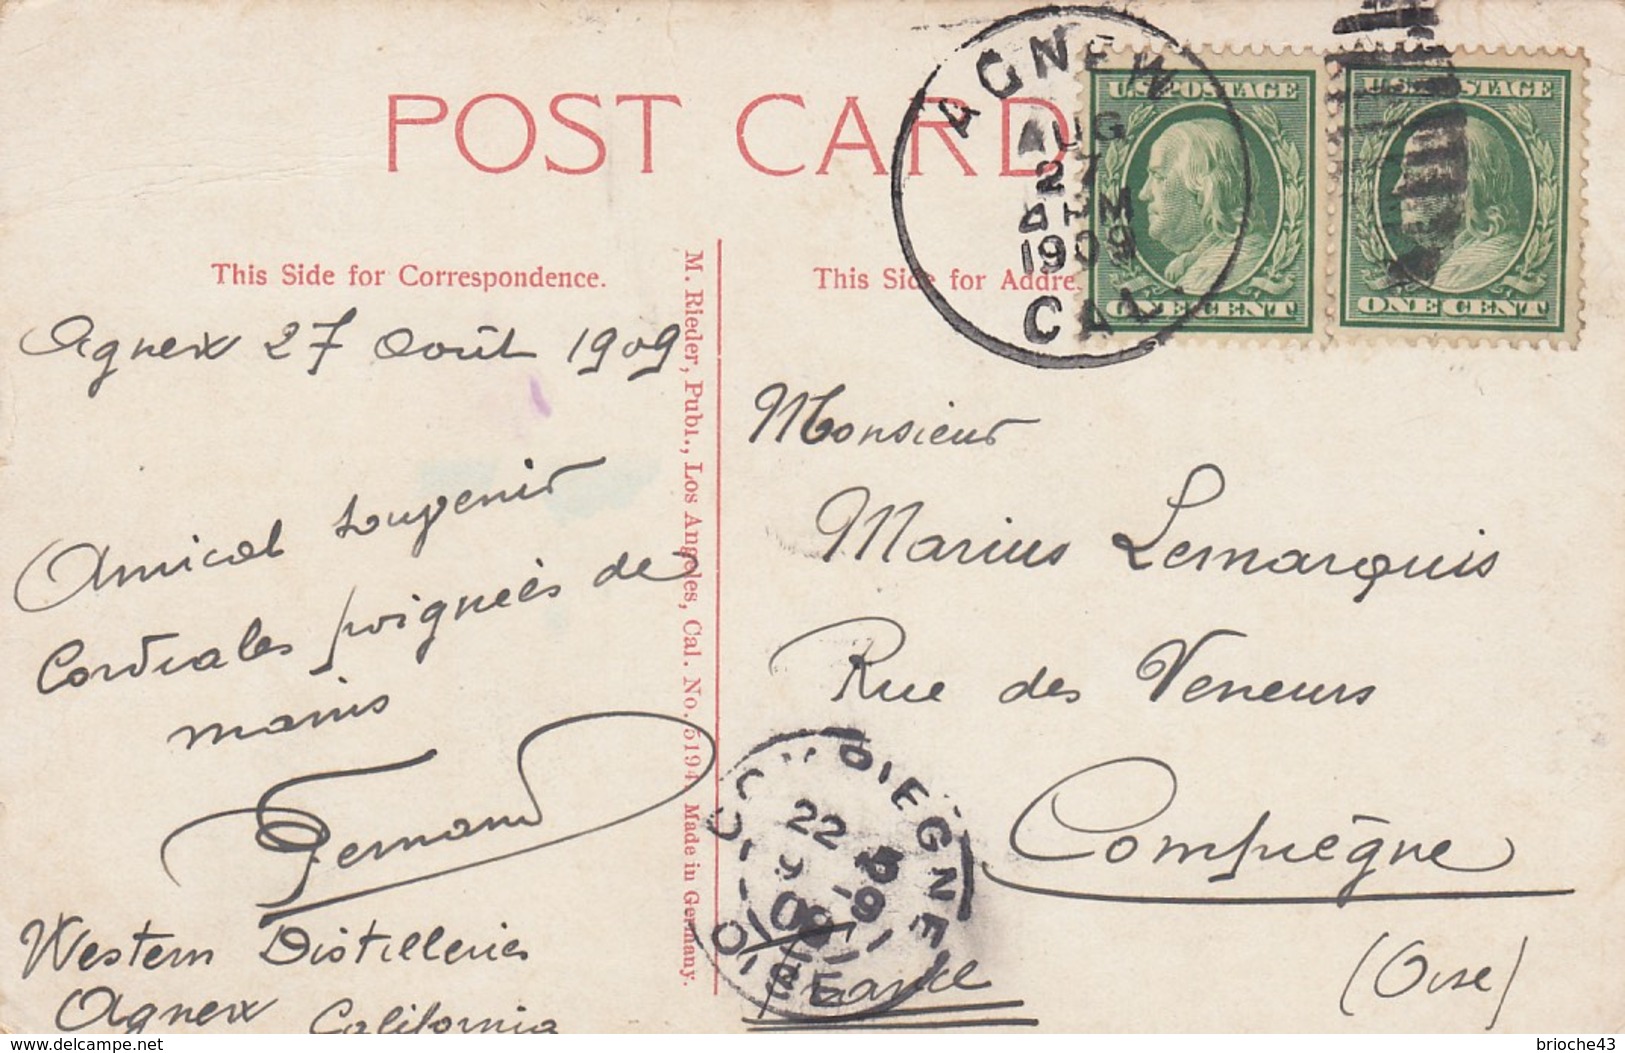 POST CARD
This Side for Correspondence.
Agnew 27 Août 1909
Amical souvenir
Cordiales poignées de
mains
Fernand
Western Distilleries
Agnew California
M. Rieder, Publ., Los Angeles, Cal. No. 5194 Made in Germany.
This Side for Addre
AGNEW
AUG
27
4 PM
1909
CAL.
U.S. POSTAGE
ONE CENT
U.S. POSTAGE
ONE CENT
Monsieur
Marius Lemarquis
Rue des Veneurs
Compiègne
(Oise)
France
COMPIEGNE
22
9
09
OISE
https://www.delcampe.net
brioche43